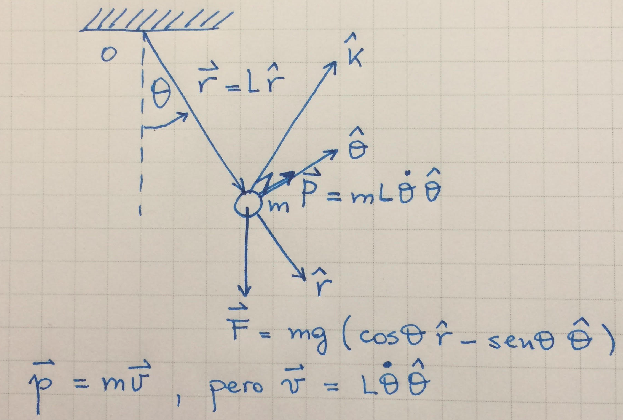 O
θ
r⃗ = L r̂
k̂
θ̂
m
P⃗ = mLθ̇ θ̂
r̂
F⃗ = mg (cosθ r̂ - senθ θ̂)
p⃗ = mv⃗ , pero v⃗ = Lθ̇ θ̂